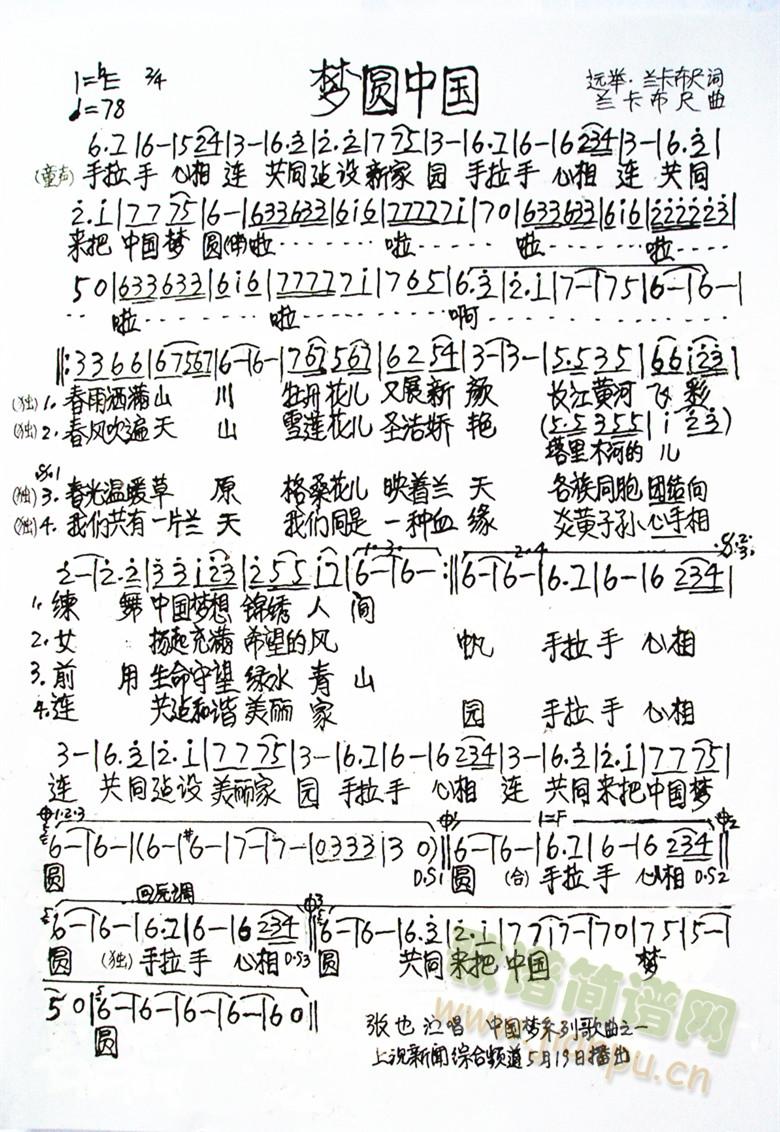 1=♭E 2/4 梦圆中国 远举·兰卡布尺词
♩=78 兰卡布尺曲
6.7|6-|5 2 4|3-|6.3|2.2|7 7 5|3-|6.7|6-|6 2 3 4|3-|6.3|
(童声) 手拉手 心相 连 共同 建设 新家 园 手拉手 心相 连 共同
2.i|7 7 7 5|6-|6 3 3 6 3 3|6 i 6|7 7 7 7 7 i|7 0|6 3 3 6 3 3|6 i 6|2 2 2 2 2 3|
来把 中国梦 圆 啦 啦 啦 啦
5 0|6 3 3 6 3 3|6 i 6|7 7 7 7 7 i|7 6 5|6.3|2.i|7-|7 5|6-|6-|
啦 啦 啊
‖:3 3 6 6|6 7 5 6 7|6-|6-|7 6 7 5 6 7|6 2 5 4|3-|3-|5.5 3 5|6 6 i 2 3|
(独) 1. 春雨洒满山 川 牡丹花儿 又展新 颜 长江黄河 飞 彩
(独) 2. 春风吹遍天 山 雪莲花儿 圣洁娇 艳 (5.5 3 5 5|i 2 3)
塔里木河的 儿
(独) 3. 春光温暖草 原 格桑花儿 映着兰 天 各族同胞 团结向
(独) 4. 我们共有一片兰 天 我们同是 一种血 缘 炎黄子孙 心手相
1. 3. 2. 4.
2-|2.2|3 3 i 2 3|2 5 5 i 7|6-|6-:‖6-|6-|6.7|6-|6 2 3 4|
1. 练 舞 中国梦想 锦绣 人 间
2. 女 扬起充满 希望的风 帆 手拉手 心相
3. 前 用 生命守望 绿水 青 山
4. 连 共建和谐 美丽 家 园 手拉手 心相
3-|6.3|2.i|7 7 7 5|3-|6.7|6-|6 2 3 4|3-|6.3|2.i|7 7 7 5|
连 共同 建设 美丽家 园 手拉手 心相 连 共同 来把 中国梦
1·2·3 1=F
6-|6-|(6-|#6-|7-|7-|0 3 3 3|3 0)‖6-|6-|6.7|6-|6 2 3 4‖
圆 D.S1 圆 (合) 手拉手 心相 D.S2
回原调
6-|6-|6.7|6-|6 2 3 4‖6-|6-|6.3|2.i|7 7 i|7-|7 0|7 5|5-|
圆 (独) 手拉手 心相 D.S3 圆 共同 来把 中国 梦
5 0|6-|6-|6-|6-|6 0‖
圆
张也 演唱 中国梦系列歌曲之一
上视新闻综合频道5月19日播出
歌谱简谱网
www.jianpu.cn